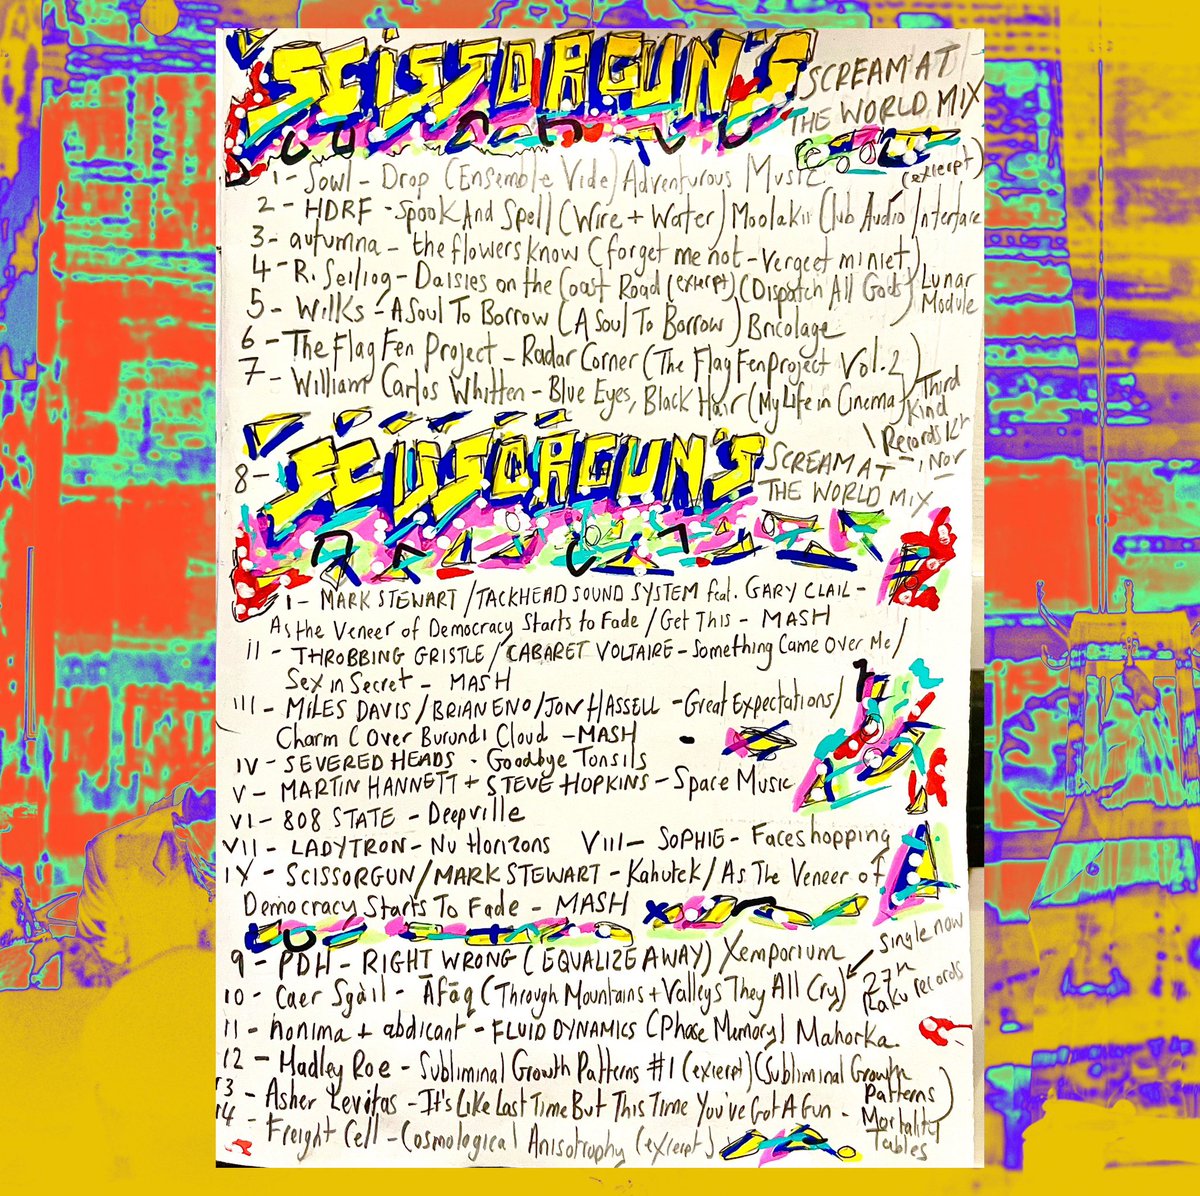 SCISSORGUN'S SCREAM AT
THE WORLD MIX
(exerpt)
1 - Sowl - Drop (Ensemble Vide) Adventurous Music
2 - HDRF - Spook And Spell (Wire + Water) Moolakii Club Audio Interface
3 - autumna - the flowers know (forget me not - Vergeet miniet)
4 - R. Seiliog - Daisies on the Coast Road (exerpt) (Dispatch All Gods) Lunar
Module
5 - Wilks - A Soul To Borrow (A Soul To Borrow) Bricolage
6 - The Flag Fen Project - Radar Corner (The Flag Fen Project Vol. 2)
7 - William Carlos Whitten - Blue Eyes, Black Hair (My Life in Cinema) Third
Kind
Records
1 Nov
8 - SCISSORGUN'S SCREAM AT
THE WORLD MIX
i - MARK STEWART / TACKHEAD SOUND SYSTEM feat. GARY CLAIL -
As the Veneer of Democracy Starts to Fade / Get This - MASH
ii - THROBBING GRISTLE / CABARET VOLTAIRE - Something Came Over Me /
Sex in Secret - MASH
iii - MILES DAVIS / BRIAN ENO / JON HASSELL - Great Expectations /
Charm (Over Burundi Cloud - MASH
iv - SEVERED HEADS - Goodbye Tonsils
v - MARTIN HANNETT + STEVE HOPKINS - Space Music
vi - 808 STATE - Deepville
VII - LADYTRON - Nu Horizons VIII - SOPHIE - Faceshopping
IX - SCISSORGUN / MARK STEWART - Kahutek / As The Veneer of
Democracy Starts To Fade - MASH
9 - PDH - RIGHT WRONG (EQUALIZE AWAY) Xemporium
single now
10 - Caer Sgàil - Āfāq (Through Mountains + Valleys They All Cry)
Raku records
11 - nonima + abdicant - FLUID DYNAMICS (Phase Memory) Mahorka
12 - Hadley Roe - Subliminal Growth Patterns #1 (exerpt) (Subliminal Growth
Patterns)
13 - Asher Levitas - It's Like Last Time But This Time You've Got A Gun - Mortality
Tables
14 - Freight Cell - Cosmological Anisotrophy (exerpt)